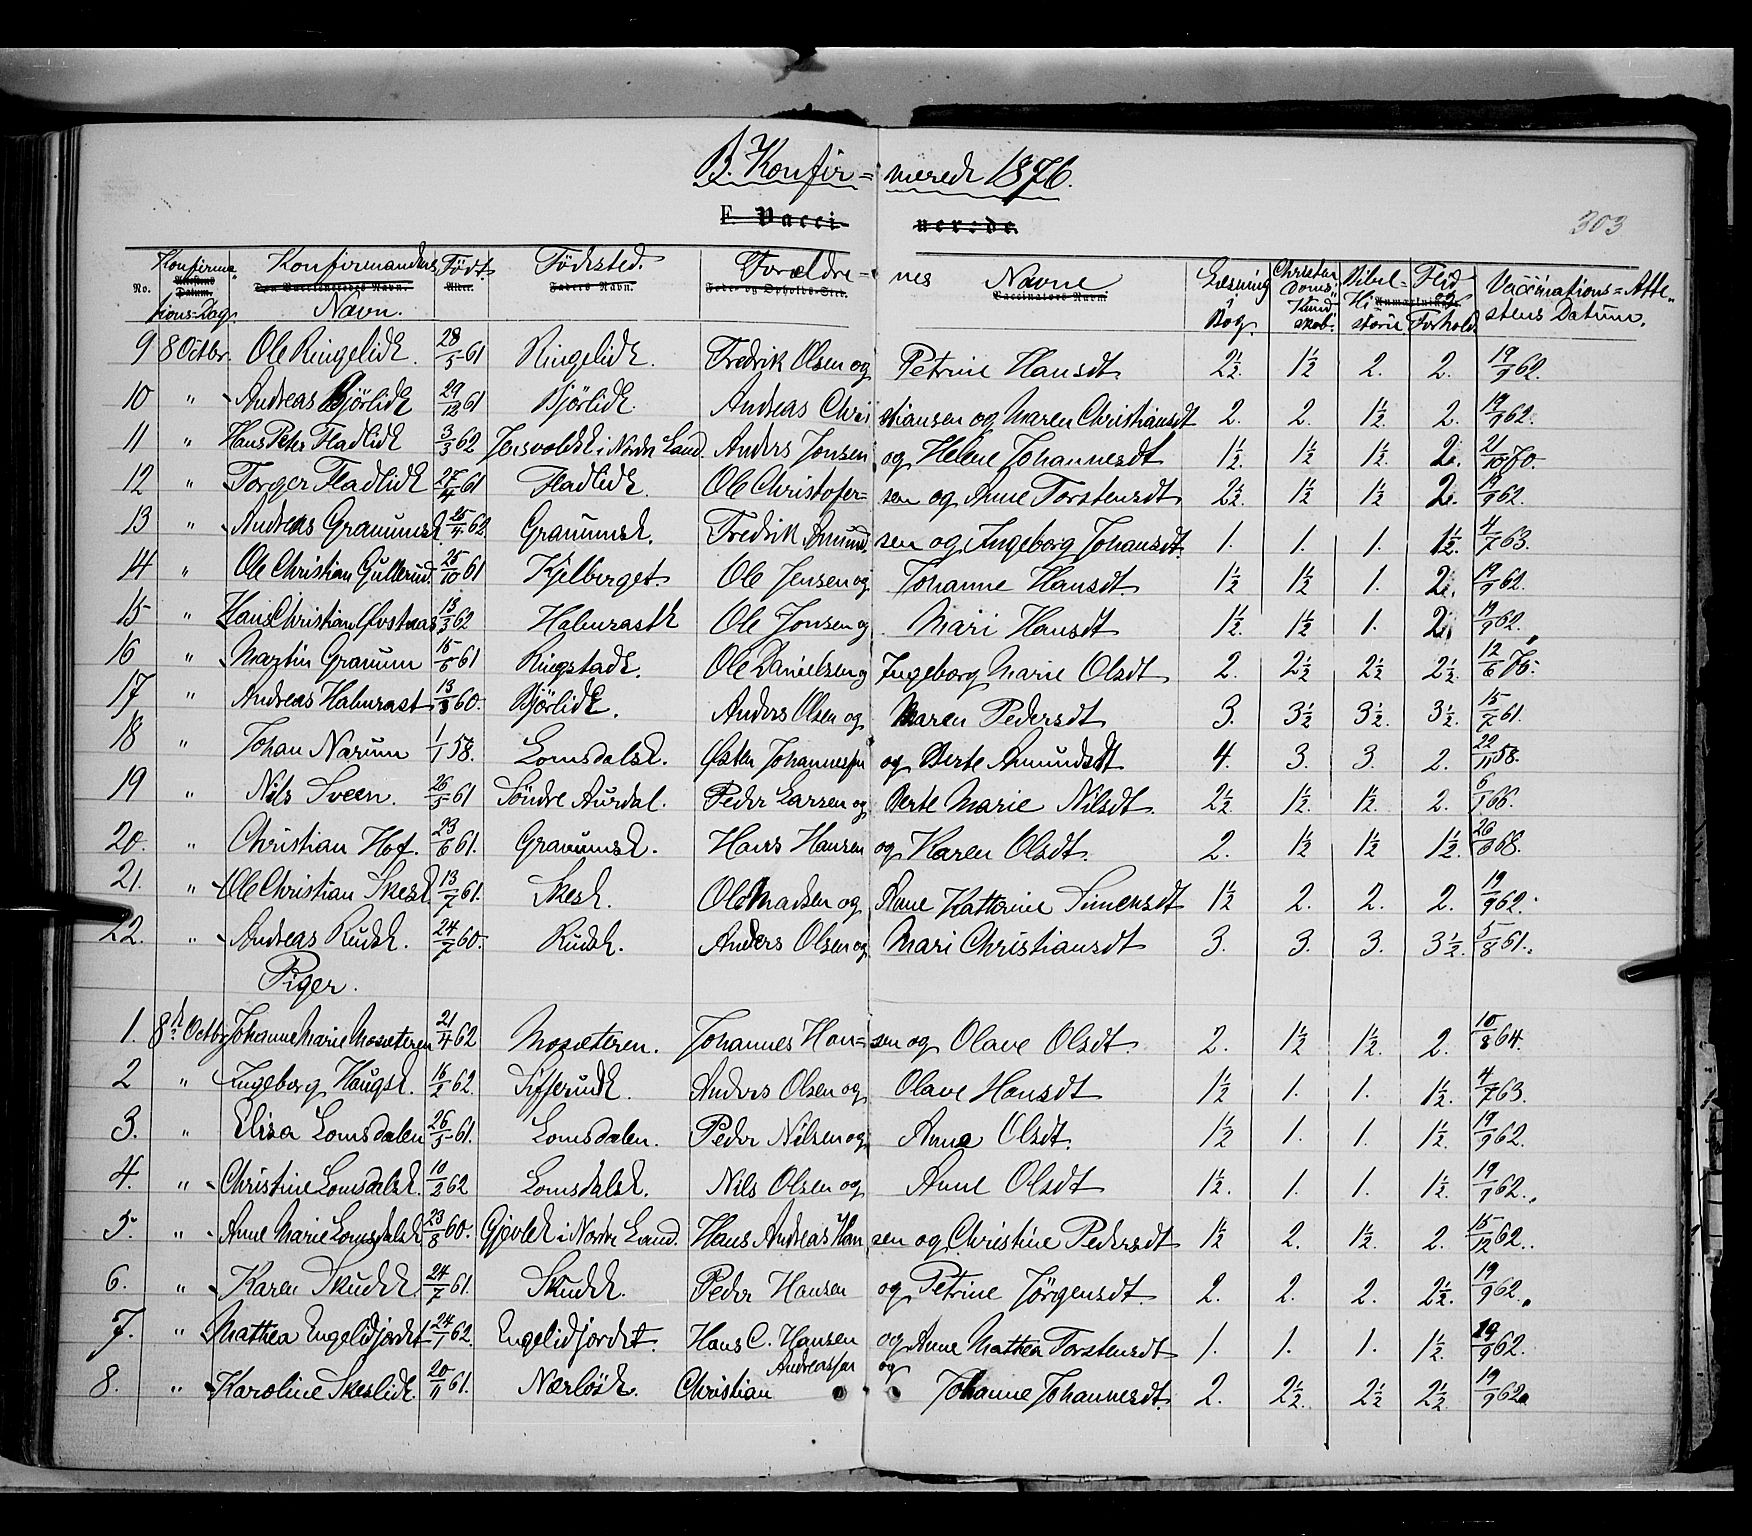 B. Konfir= merede 1876.
F. Vacci- nerede.
303
No. Konfirma- tions-Dag. Konfirmandens Navn. Født. Fødested. Forældre= nes Navne Læsning i Bog. Christendoms Kundskab. Bibel-Historie Flid og Forhold. Vaccinations=Attestens Datum.
9 8 Octbr. Ole Ringelide. 28/5 61 Ringelide. Fredrik Olsen og Petrine Hansdt. 2½. 1½ 2. 2. 19/9 62.
10 " Andreas Bjørlide 29/12 61 Bjørlide. Andreas Chri stiansen og Maren Christiansdt 2. 2. 1½ 2. 19/9 62.
11 " Hans Peter Fladlide 3/3 62 i Nordre Land. Anders Jonsen og Helene Johannesdt 1½. 1½ 1½. 2. 21/10 70.
12 " Torger Fladlide 27/4 61 Fladlide. Ole Christofer= sen og Anne Torstensdt 2½. 1½ 1½ 2. 19/9 62.
13 " Andreas Granumse. 25/4 62 Granumse. Fredrik Amund. sen og Ingeborg Johansdt. 1. 1. 1. 1½. 4/7 63.
14 " Ole Christian Gullerud. 25/10 61 Kjelberget. Ole Jensen og Johanne Hansdt 1½ 1½ 1. 2. 19/9 62.
15 " Hans Christian Øvstaas 13/3 62 Halmraste Ole Jonsen og Mari Hansdt 1½. 1½ 1. 2. 19/9 62.
16 " Martin Granum 15/5 61 Ringstade. Ole Danielsen og Ingeborg Marie Olsdt 2. 2½ 2½ 2½. 12/6 76.
17 " Andreas Halmrast 13/3 60. Bjørlide. Anders Olsen og Maren Pedersdt 3. 3½ 3½. 3½. 15/7 61.
18 " Johan Narum 1/1 58. Lomsdalse. Østen Johannessen og Berte Amundsdt 4. 3. 3. 2. 22/11 58.
19 " Nils Sveen. 26/5 61 Søndre Aurdal. Peder Larsen og Berte Marie Nilsdt. 2½ 1½. 1½ 2. 6/1 66.
20. " Christian Hof. 23/6 61. Granumse. Hans Hansen og Karen Olsdt. 2. 1½ 1½ 1½. 26/9 68.
21. " Ole Christian Skese. 13/7 61. Skese. Ole Madsen og Anne Kathrine Simensdt 1½ 2. 2. 2. 19/9 62.
22. " Andreas Rude. 24/7 60. Rude. Anders Olsen og Mari Christiansdt 3. 3. 3. 3½. 5/8 61.
Piger.
1. 8de Octbr Johanne Marie Mosæteren 21/4 62 Mosæteren. Johannes Han= sen og Olave Olsdt. 2. 1½ 1½. 2. 10/8 64.
2 " Ingeborg Haugse. 16/2 62. Sifferude. Anders Olsen og Olave Hansdt 1½ 1. 1. 1½. 4/7 63.
3. " Elisa Lomsdalen 26/5 61. Lomsdalen. Peder Nilsen og Anne Olsdt. 1½ 1. 1. 1½. 19/9 62.
4. " Christine Lomsdalse. 10/2 62 Lomsdalse. Nils Olsen og Anne Olsdt 1½. 1. 1. 1½. 19/9 62.
5. " Anne Marie Lomsdalse 23/8 60. Gjevle i Nordre Land. Hans Andreas Han sen og Christine Pedersdt 1½ 2. 1½. 2. 15/12 62.
6. " Karen Skudde 24/7 61. Skudde. Peder Hansen og Petrine Jörgensdt. 2. 2. 2. 2½. 19/9 62.
7. " Mathea Engelidjordet 24/1 62. Engelidjordet. Hans C. Hansen og Anne Mathea Torstensdt 1. 1. 1. 1½. 19/9 62.
8. " Karoline Skeslide. 20/11 61. Nærløse. Christian Andreassen og Johanne Johannesdt. 2. 2½. 2½ 2½. 19/9 62.